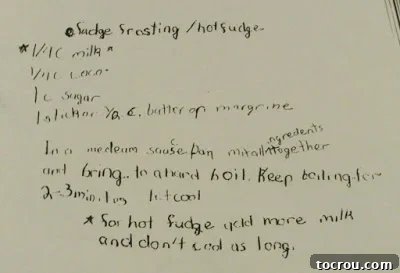 • Fudge Frosting / hotfudge.
* 1/4 c milk *
1/4 c coco.
1 c sugar
1 stick or ½ c. butter or margrine
In a medeum sauce pan mix all ingredents together
and bring to a hard boil. Keep boiling for
2-3 min. let cool
* for hot fudge add more milk
and don't cool as long.
tocrou.com